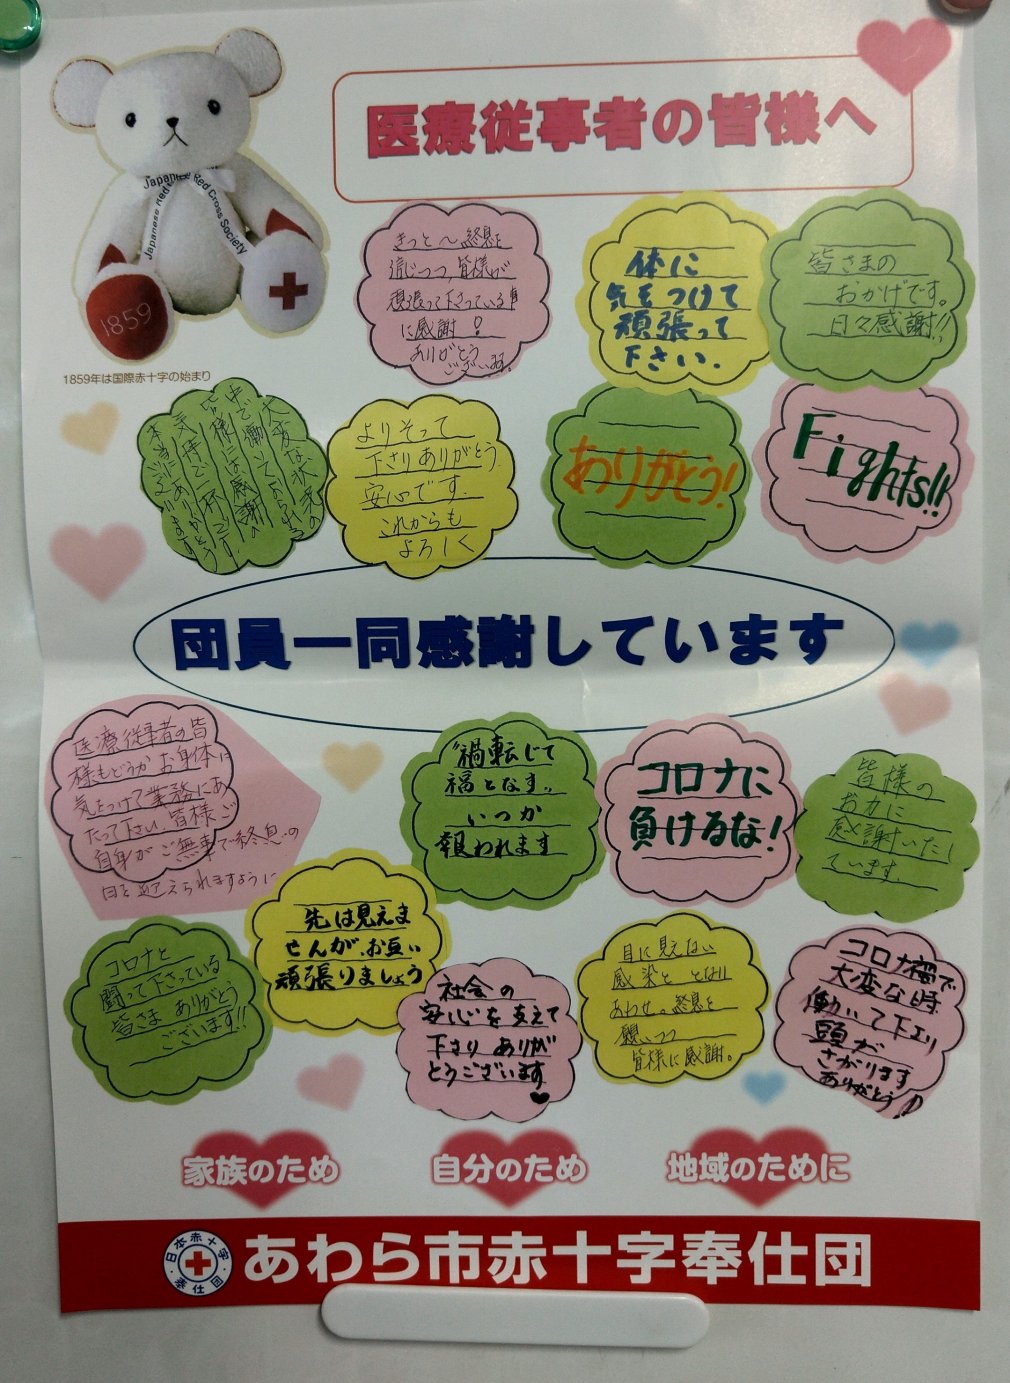 医療従事者の皆様へ
Japanese Red Cross Society
Japanese Red
1859
1859年は国際赤十字の始まり
きっと〜終息を
信じつつ、皆様が
頑張って下さっている事
に感謝!
ありがとう
ございます。
体に
気をつけて
頑張って
下さい.
皆さまの
おかげです。
日々感謝!!
大変な状況の
中で働いておられる
皆様には感謝の
気持で一杯です
本当にありがとう
ございます
よりそって
下さりありがとう
安心です.
これからも
よろしく
ありがとう!
Fights!!
団員一同感謝しています
医療従事者の皆
様もどうかお身体に
気をつけて業務にあ
たって下さい、皆様ご
自身がご無事で終息の
日を迎えられますように
"禍転じて
福となす"
いつか
報われます
コロナに
負けるな!
皆様の
お力に
感謝いたし
ています.
先は見えま
せんが、お互い
頑張りましょう
コロナと
闘って下さっている
皆さま ありがとう
ございます!!
社会の
安心を支えて
下さり ありが
とうございます
目に見えない
感染と となり
あわせ。終息を
願いつつ
皆様に感謝。
コロナ禍で
大変な時
働いて下さり
頭が
さがります
ありがとう♪
家族のため
自分のため
地域のために
日本赤十字
奉仕団
あわら市赤十字奉仕団